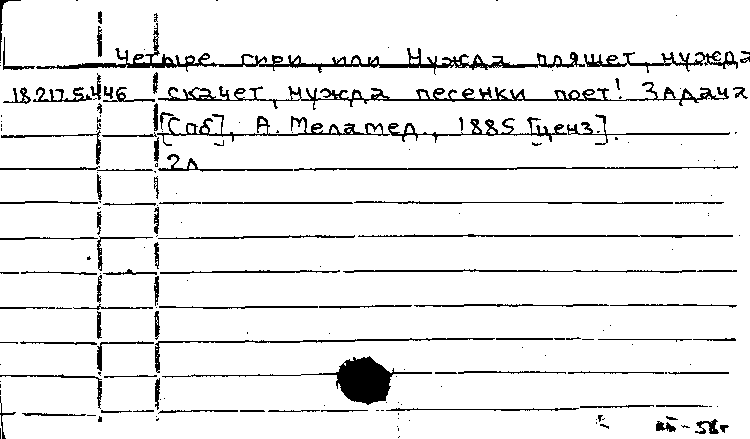 Четыре гири, или Нужда пляшет, нужда
18.217.5.446 скачет, нужда песенки поет! Задача
[Спб], А. Меламед., 1885 [ценз].
2л